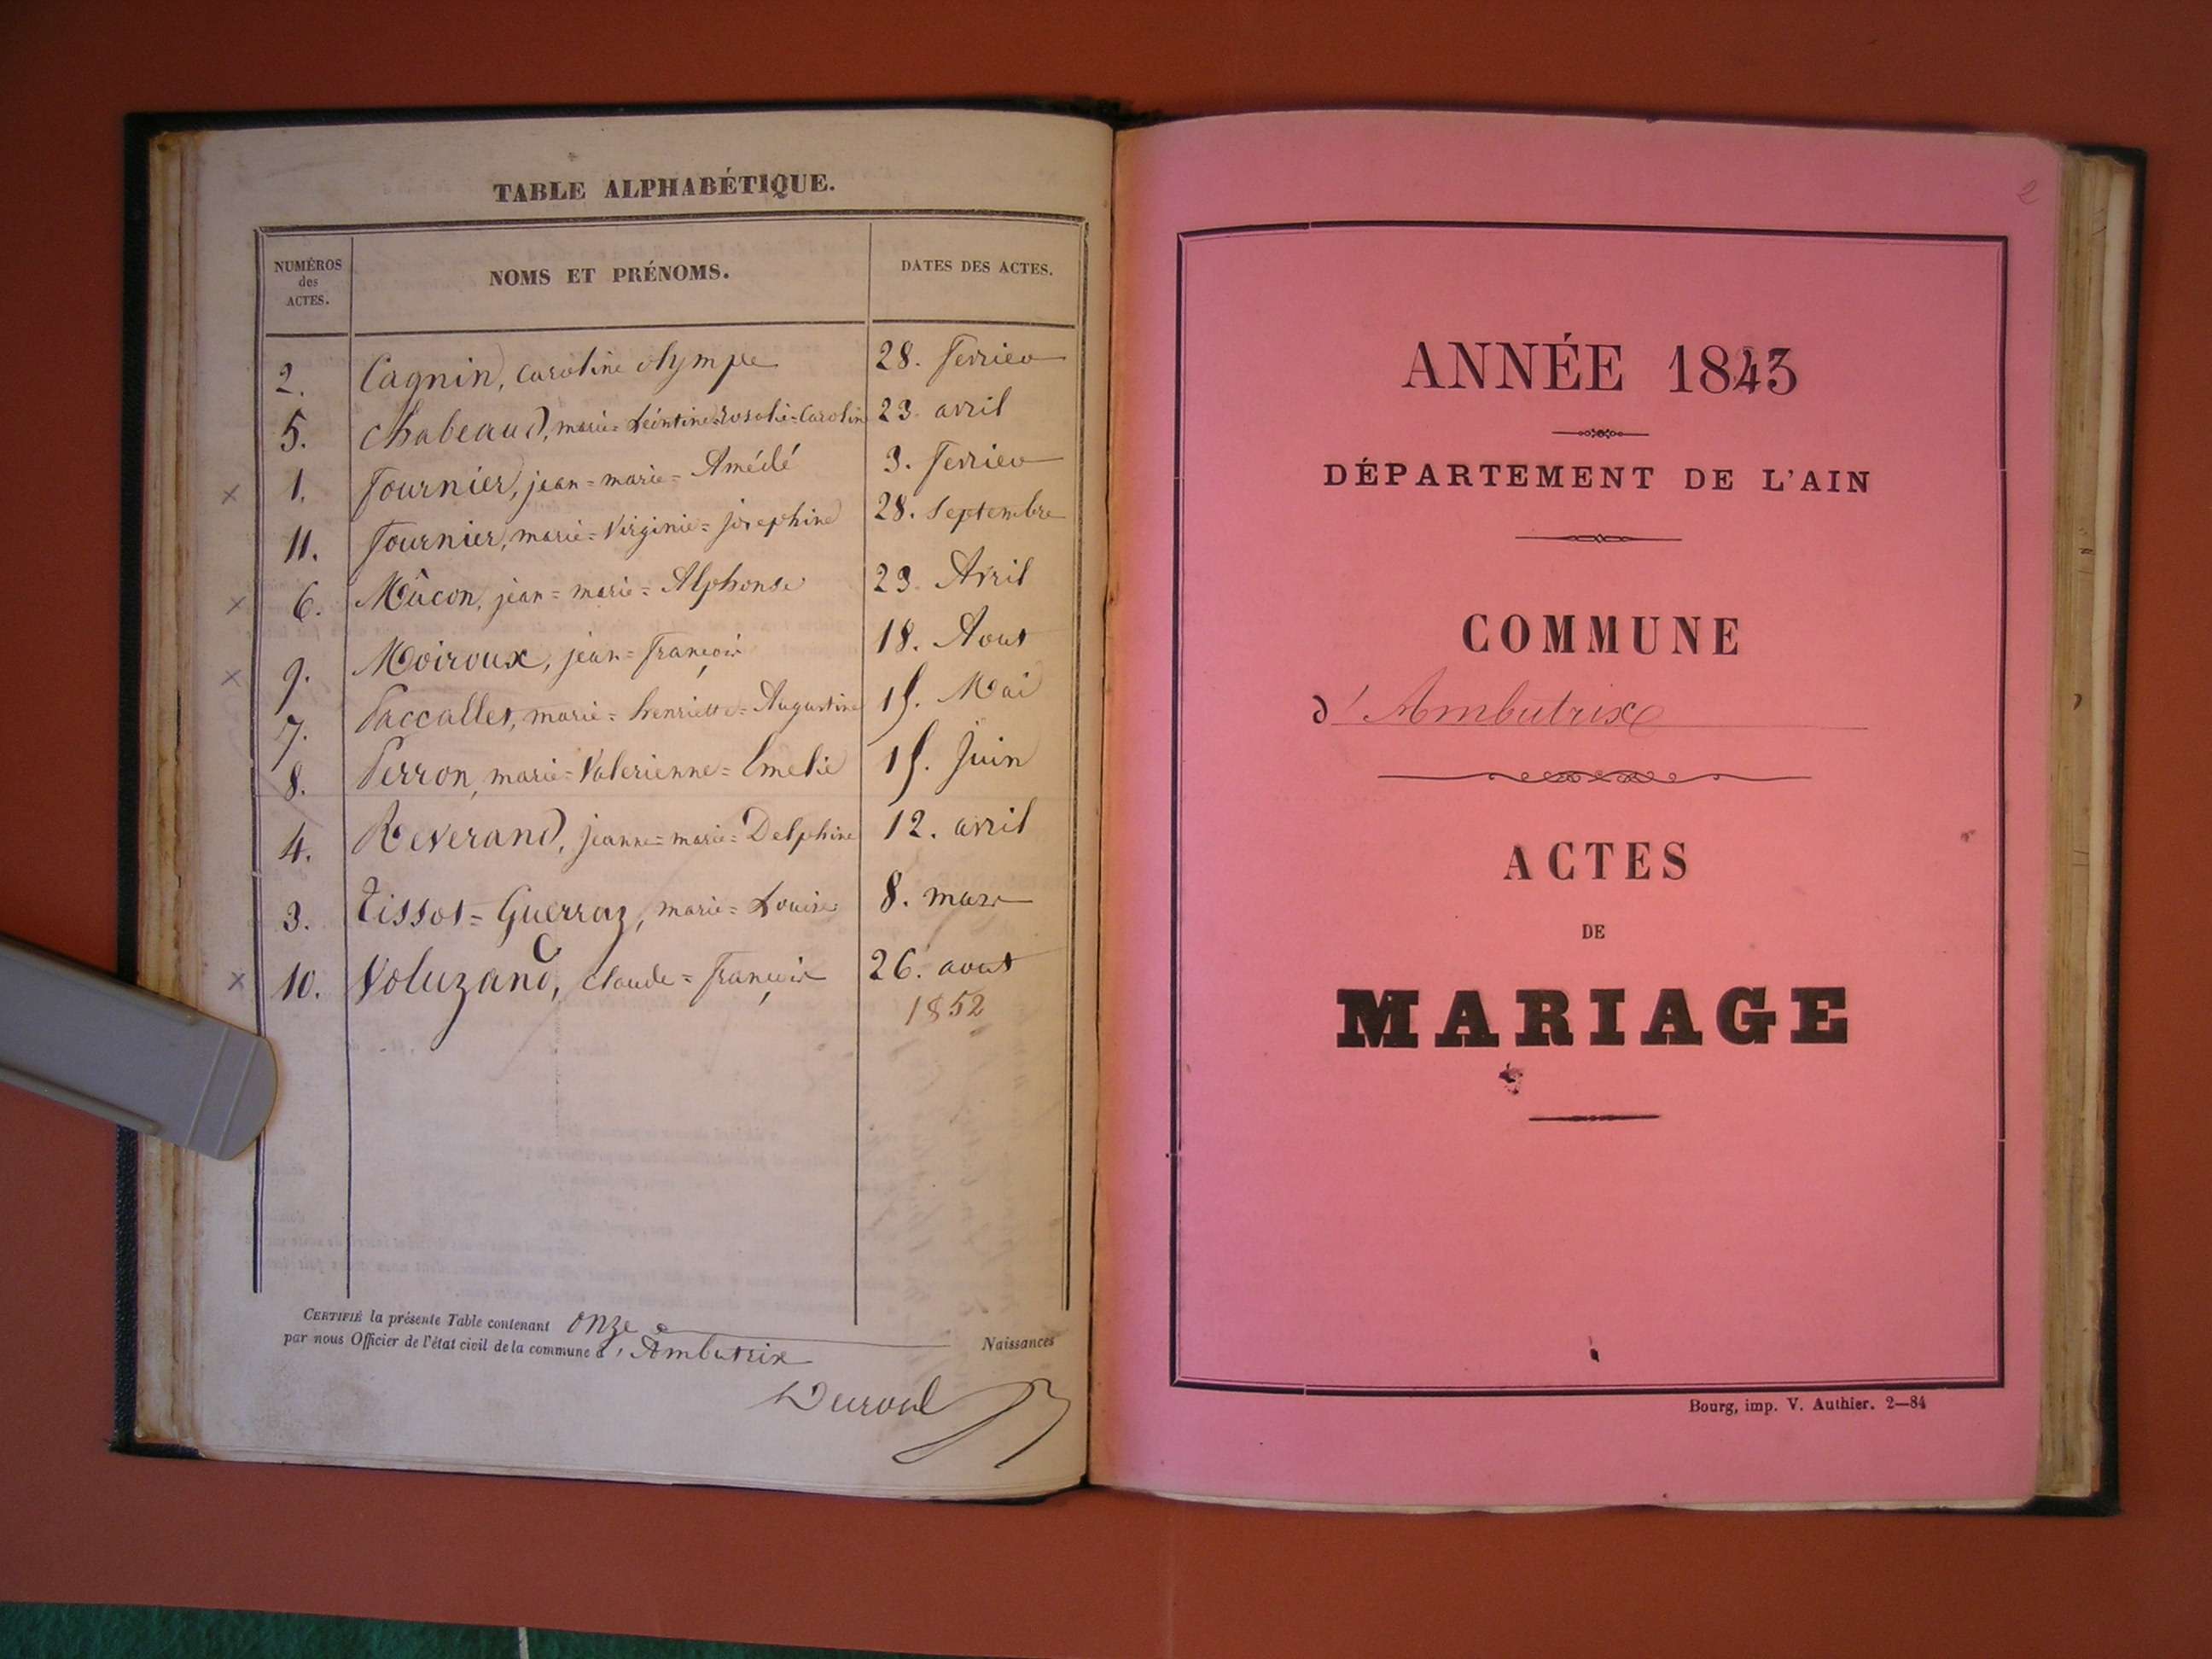 TABLE ALPHABÉTIQUE.
NUMÉROS des ACTES. NOMS ET PRÉNOMS. DATES DES ACTES.
2. Cagnin, Caroline olympe 28. fevrier
5. Chabeaud, marie=Léontine=rosalie=Caroline 23. avril
1. Fournier, jean=marie=Amédé 3. fevrier
11. Fournier, marie=Virginie=josephine 28. Septembre
6. Mâcon, jean=marie=Alphonse 23. Avril
9. Moiroux, jean=françois 18. Aout
7. Paccallet, marie=henriette=Augustine 15. Mai
8. Perron, marie=Valerienne=Emelie 15. Juin
4. Reverand, jeanne=marie=Delphine 12. avril
3. Tissot=Guerraz, marie=Louise 8. mars
10. Voluzand, claude=françois 26. aout
1852
CERTIFIÉ la présente Table contenant onze Naissances
par nous Officier de l'état civil de la commune d'Ambutrix
2
ANNÉE 1843
DÉPARTEMENT DE L'AIN
COMMUNE
d'Ambutrix
ACTES
DE
MARIAGE
Bourg, imp. V. Authier. 2—84